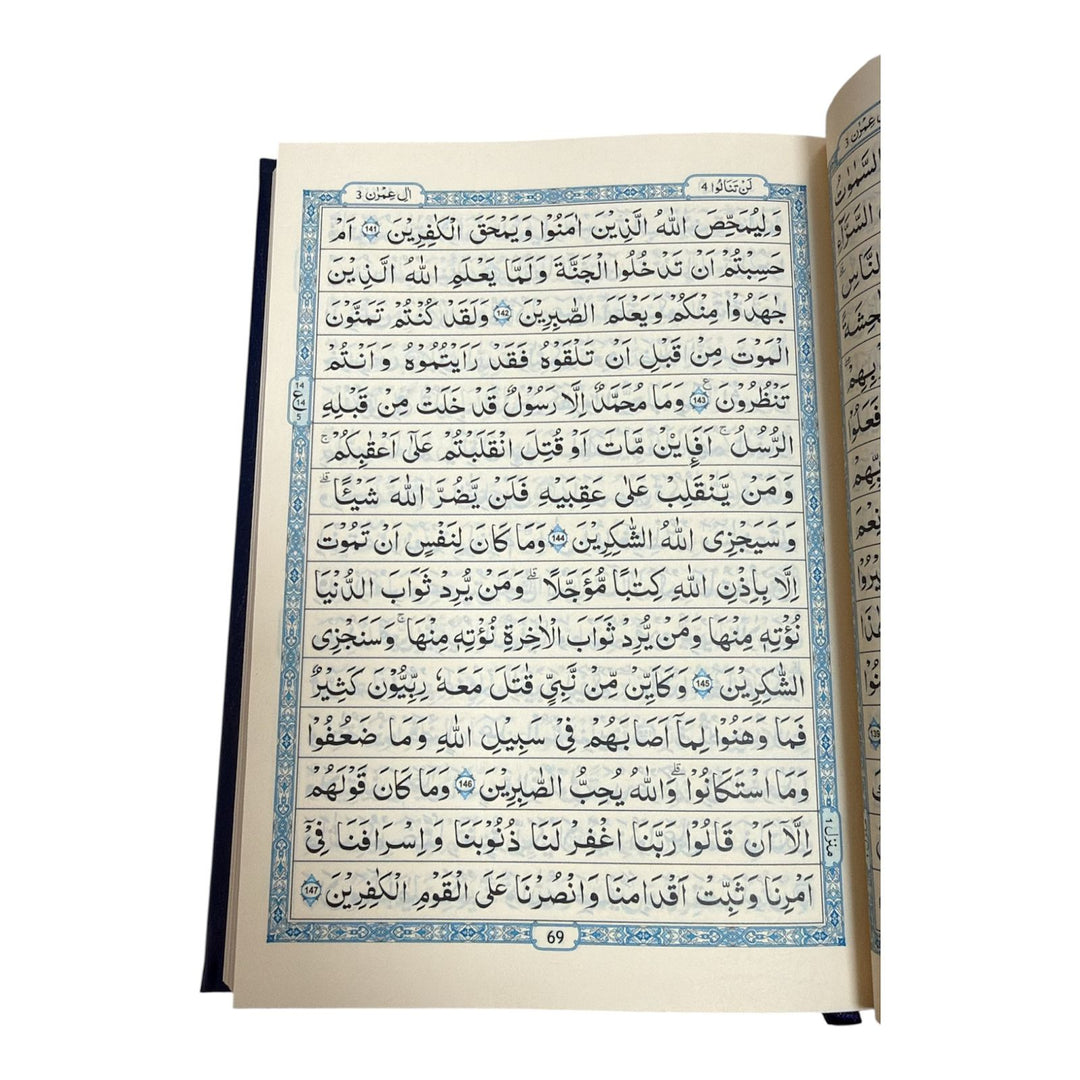 لَنْ تَنَالُوا 4
اٰلِ عِمْرٰن 3
وَلِيُمَحِّصَ اللّٰهُ الَّذِيْنَ اٰمَنُوْا وَيَمْحَقَ الْكٰفِرِيْنَ 141 اَمْ
حَسِبْتُمْ اَنْ تَدْخُلُوا الْجَنَّةَ وَلَمَّا يَعْلَمِ اللّٰهُ الَّذِيْنَ
جٰهَدُوْا مِنْكُمْ وَيَعْلَمَ الصّٰبِرِيْنَ 142 وَلَقَدْ كُنْتُمْ تَمَنَّوْنَ
الْمَوْتَ مِنْ قَبْلِ اَنْ تَلْقَوْهُ فَقَدْ رَاَيْتُمُوْهُ وَاَنْتُمْ
تَنْظُرُوْنَ 143 وَمَا مُحَمَّدٌ اِلَّا رَسُوْلٌ قَدْ خَلَتْ مِنْ قَبْلِهِ
الرُّسُلُ ۚ اَفَاۡئِنْ مَّاتَ اَوْ قُتِلَ انْقَلَبْتُمْ عَلٰٓى اَعْقَابِكُمْ ۚ
وَمَنْ يَّنْقَلِبْ عَلٰى عَقِبَيْهِ فَلَنْ يَّضُرَّ اللّٰهَ شَيْـًٔا ۗ
وَسَيَجْزِى اللّٰهُ الشّٰكِرِيْنَ 144 وَمَا كَانَ لِنَفْسٍ اَنْ تَمُوْتَ
اِلَّا بِاِذْنِ اللّٰهِ كِتٰبًا مُّؤَجَّلًا ۗ وَمَنْ يُّرِدْ ثَوَابَ الدُّنْيَا
نُؤْتِهٖ مِنْهَا وَمَنْ يُّرِدْ ثَوَابَ الْاٰخِرَةِ نُؤْتِهٖ مِنْهَا ۚ وَسَنَجْزِى
الشّٰكِرِيْنَ 145 وَكَاَيِّنْ مِّنْ نَّبِيٍّ قٰتَلَ مَعَهٗ رِبِّيُّوْنَ كَثِيْرٌ
فَمَا وَهَنُوْا لِمَآ اَصَابَهُمْ فِيْ سَبِيْلِ اللّٰهِ وَمَا ضَعُفُوْا
وَمَا اسْتَكَانُوْا ۗ وَاللّٰهُ يُحِبُّ الصّٰبِرِيْنَ 146 وَمَا كَانَ قَوْلَهُمْ
اِلَّآ اَنْ قَالُوْا رَبَّنَا اغْفِرْ لَنَا ذُنُوْبَنَا وَاِسْرَافَنَا فِيْٓ
اَمْرِنَا وَثَبِّتْ اَقْدَامَنَا وَانْصُرْنَا عَلَى الْقَوْمِ الْكٰفِرِيْنَ 147
14
ع
14
5
منزل ١
69
السَّمٰوٰتُ
السَّرَّآءِ
النَّاسِ
فَعَلُوْا
139